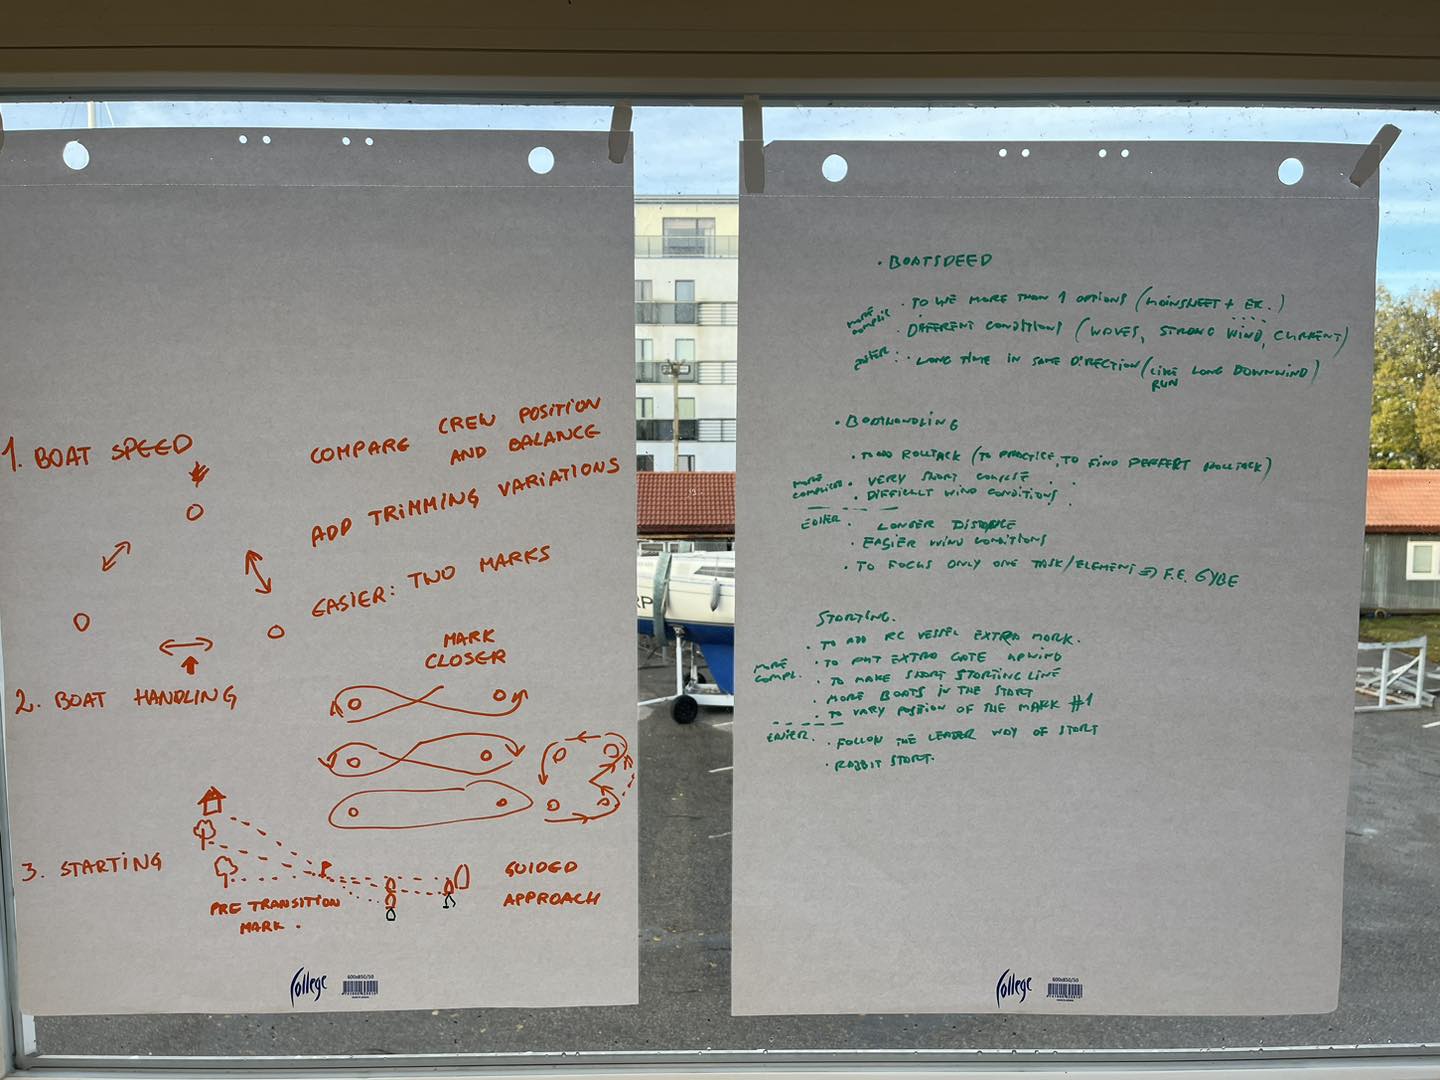 1. BOAT SPEED
COMPARE CREW POSITION
AND BALANCE
ADD TRIMMING VARIATIONS
EASIER: TWO MARKS
2. BOAT HANDLING
MARK
CLOSER
3. STARTING
PRE TRANSITION
MARK.
GUIDED
APPROACH
College
600x850/50
• BOATSPEED
MORE
COMPLIC
• TO USE MORE THAN 1 OPTIONS (MAINSHEET + EX.)
• DIFFERENT CONDITIONS (WAVES, STRONG WIND, CURRENT)
EASIER: • LONG TIME IN SAME DIRECTION (LIKE LONG DOWNWIND)
RUN
• BOATHANDLING
• TO ADD ROLLTACK (TO PRACTICE, TO FIND PERFERT ROLLTACK)
MORE
COMPLICED • VERY SHORT COURSE
• DIFFICULT WIND CONDITIONS
EASIER • LONGER DISTANCE
• EASIER WIND CONDITIONS
• TO FOCUS ONLY ONE TASK/ELEMENT => F.E. GYBE
STARTING.
• TO ADD RC VESSEL EXTRA MARK.
MORE
COMPL.
• TO PUT EXTRA GATE UPWIND
• TO MAKE SHORT STARTING LINE
• MORE BOATS IN THE START
• TO VARY POSITION OF THE MARK #1
EASIER. • FOLLOW THE LEADER WAY OF START
• RABBIT START.
College
600x850/50